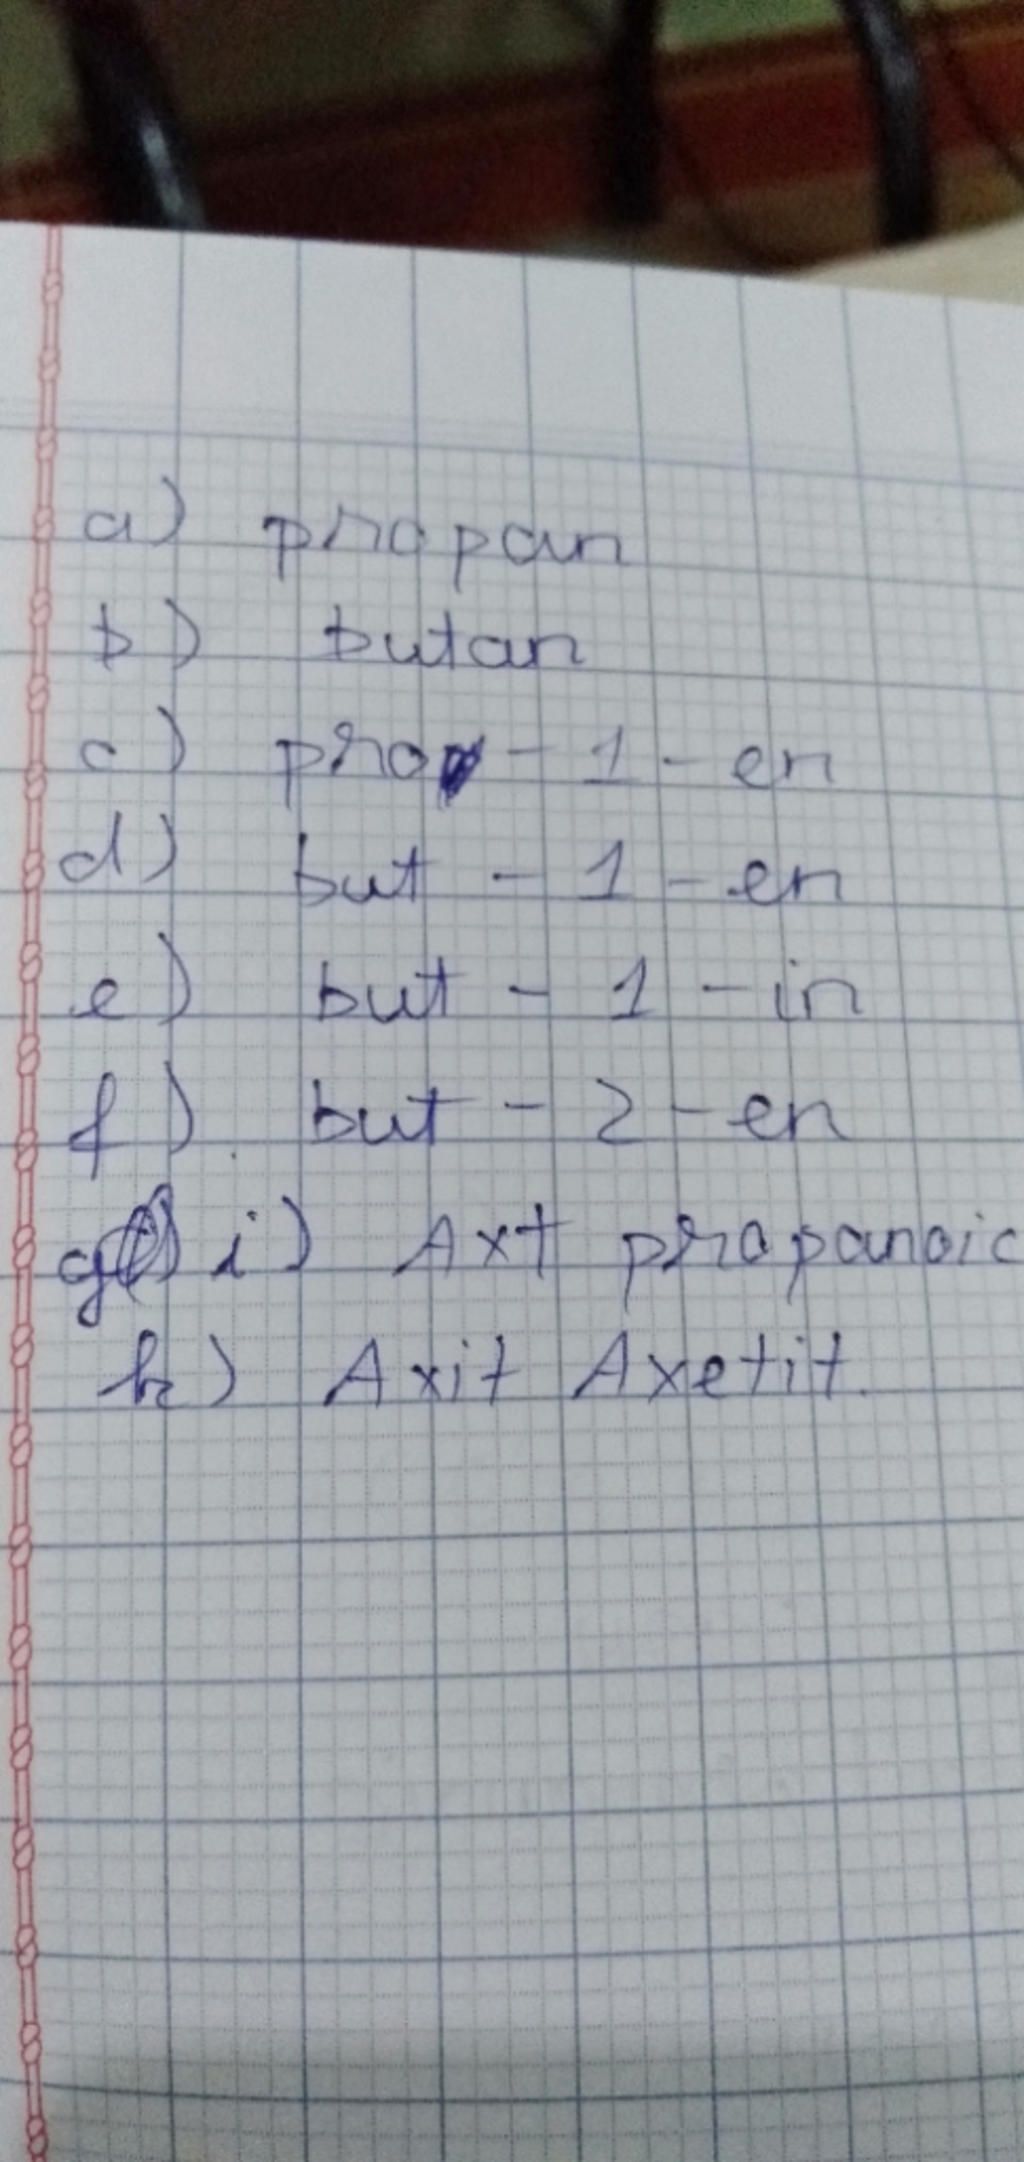 a) propan
b) butan
c) prop - 1 - en
d) but - 1 - en
e) but - 1 - in
f) but - 2 - en
g i) Axt propanoic
h) Axit Axetit.